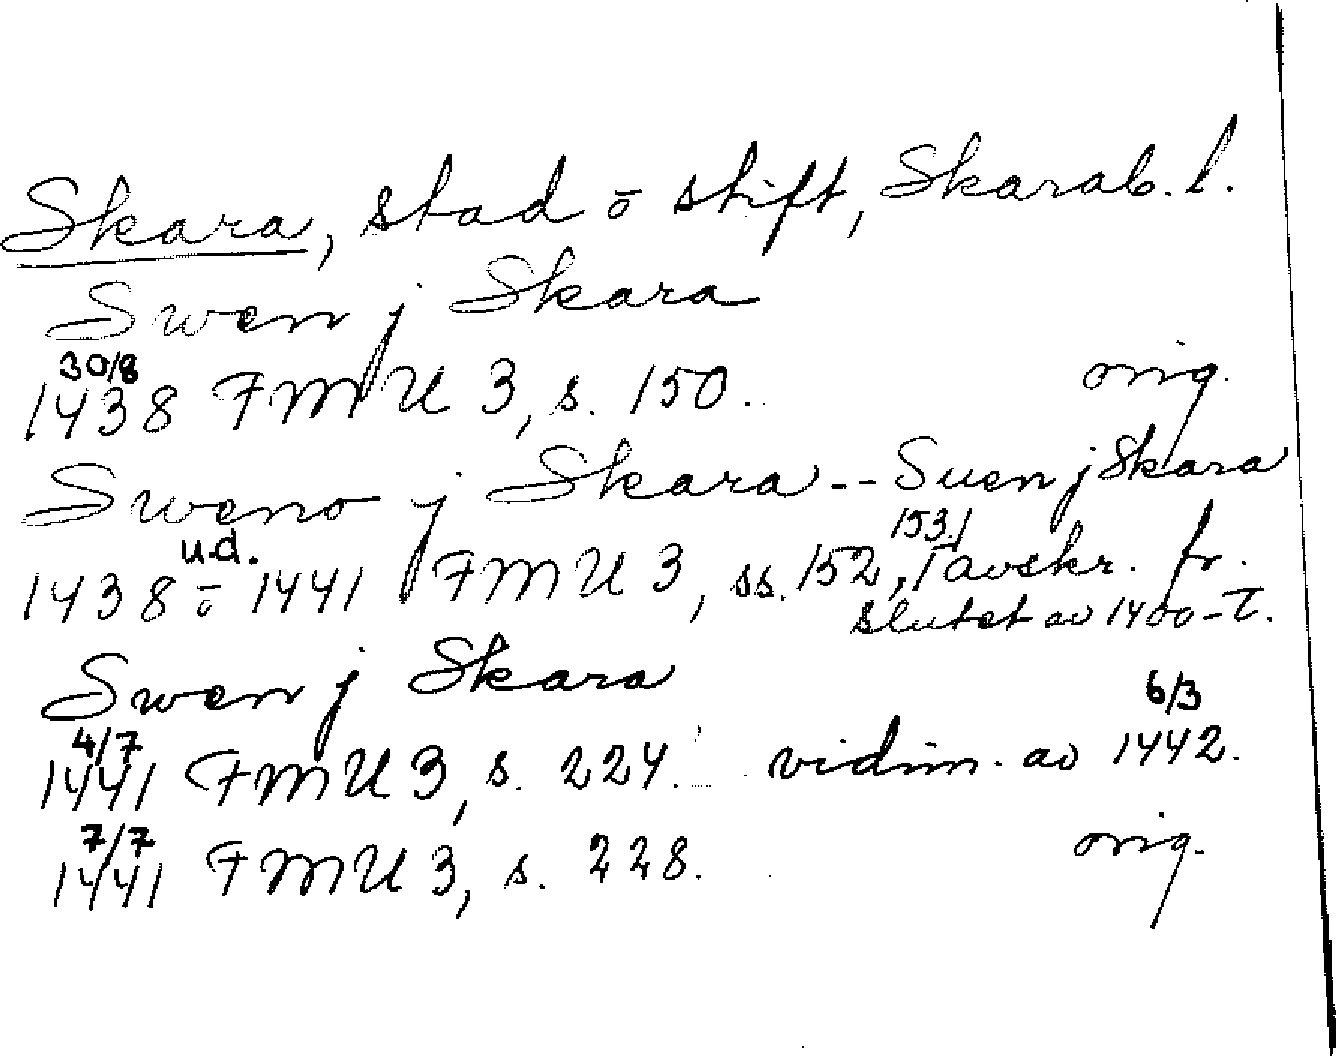 Skara, stad ō stift, Skarab. l.
Swen j Skara
30/8
1438 FMU 3, s. 150. orig.
Sweno j Skara -- Suen j Skara
u.d. 153.
1438 ō 1441 FMU 3, ss. 152, avskr. fr.
slutet av 1400-t.
Swen j Skara
4/7 6/3
1441 FMU 3, s. 224. vidim. av 1442.
7/7
1441 FMU 3, s. 228. orig.